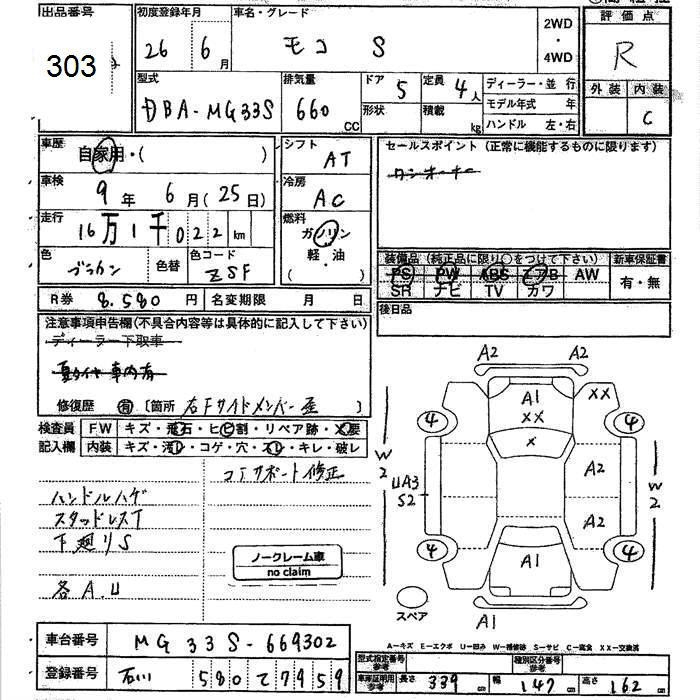 出品番号
303
初度登録年月
26年6月
車名・グレード
モコ S
2WD
・
4WD
評価点
R
型式
DBA-MG33S
排気量
660 CC
ドア 5
形状
定員 4人
積載 kg
ディーラー・並行
モデル年式 年
ハンドル 左・右
外装 内装
C
車歴
自家用・( )
車検
9年 6月(25日)
走行
16万1千022km
色
ブラウン
色替
色コード
ZSF
シフト
AT
冷房
AC
燃料
ガソリン
軽・油
( )
セールスポイント(正常に機能するものに限ります)
ワンオーナー
装備品(純正品に限り○をつけて下さい)
PS PW ABS エアB AW
SR ナビ TV カワ
新車保証書
有・無
R券 8.580円
名変期限 月 日
後日品
注意事項申告欄(不具合内容等は具体的に記入して下さい)
ディーラー下取車
夏タイヤ車内済
修復歴 有 〔箇所 右Fサイドメンバー歪 〕
検査員
記入欄
FW キズ・飛石・ヒビ割・リペア跡・X要
内装 キズ・汚れ・コゲ・穴・スレ・キレ・破レ
コアサポート修正
ハンドルハゲ
スタッドレスT
下廻りS
各A.U
ノークレーム車
no claim
A2 A2
A1
XX
XX
X
4 4
W2
UA3
S2
A2
A2
W2
4 4
A1
スペア
A1
A-キズ E-エクボ U-凹み W-補修跡 S-サビ C-腐食 XX-交換済
車台番号 MG33S-669302
登録番号 石川 580 て 7959
型式指定番号
参考
種別区分番号
参考
車庫証明用
参考
長さ 339cm 幅 147cm 高さ 162cm